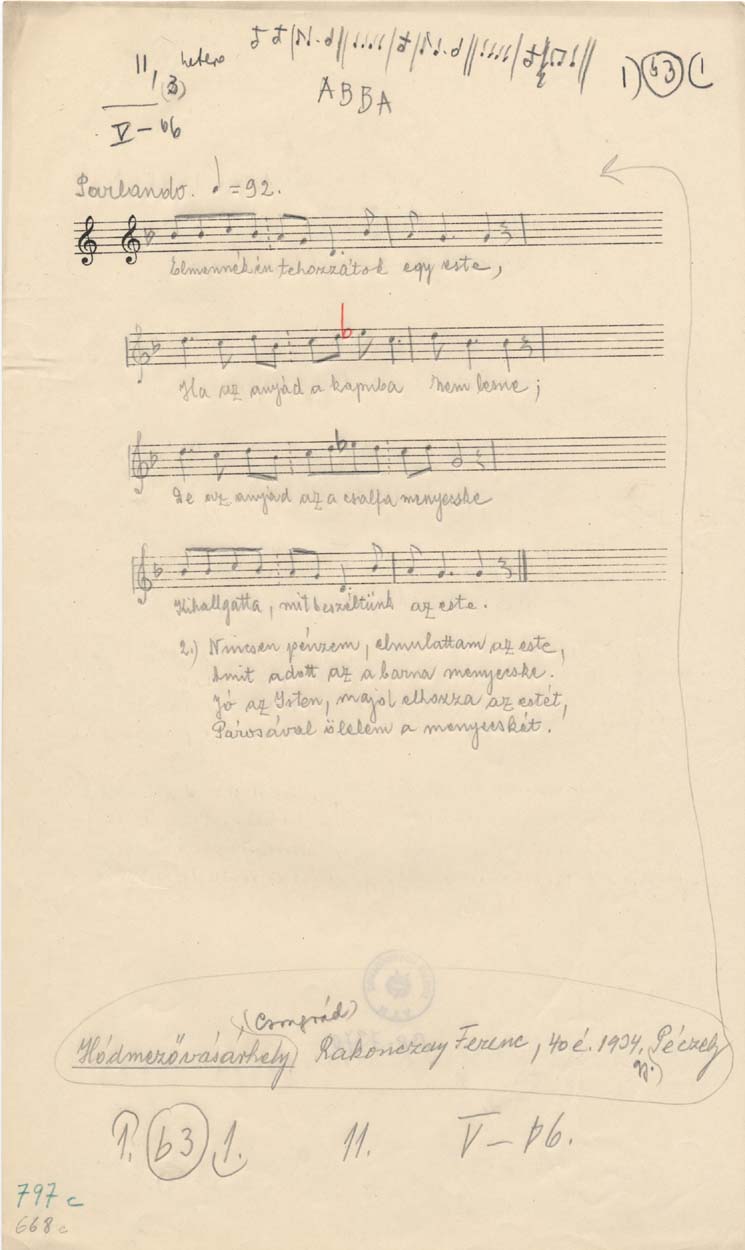 11, hetero
(3)
V - b6
ABBA
1) b3 (1
Parlando. ♩ = 92.
Elmennék én tehozzátok egy este,
Ha az anyád a kapuba nem lesne;
De az anyád az a csalfa menyecske
Kihallgatta, mit beszéltünk az este.
2.) Nincsen pénzem, elmulattam az este,
Amit adott az a barna menyecske.
Jó az Isten, majd elhozza az estét,
Párosával ölelem a menyecskét.
(Csongrád)
Hódmezővásárhely) Rakonczay Ferenc, 40 é. 1934. Péczely
1. b3 1. 11. V - b6.
797 c
668 c